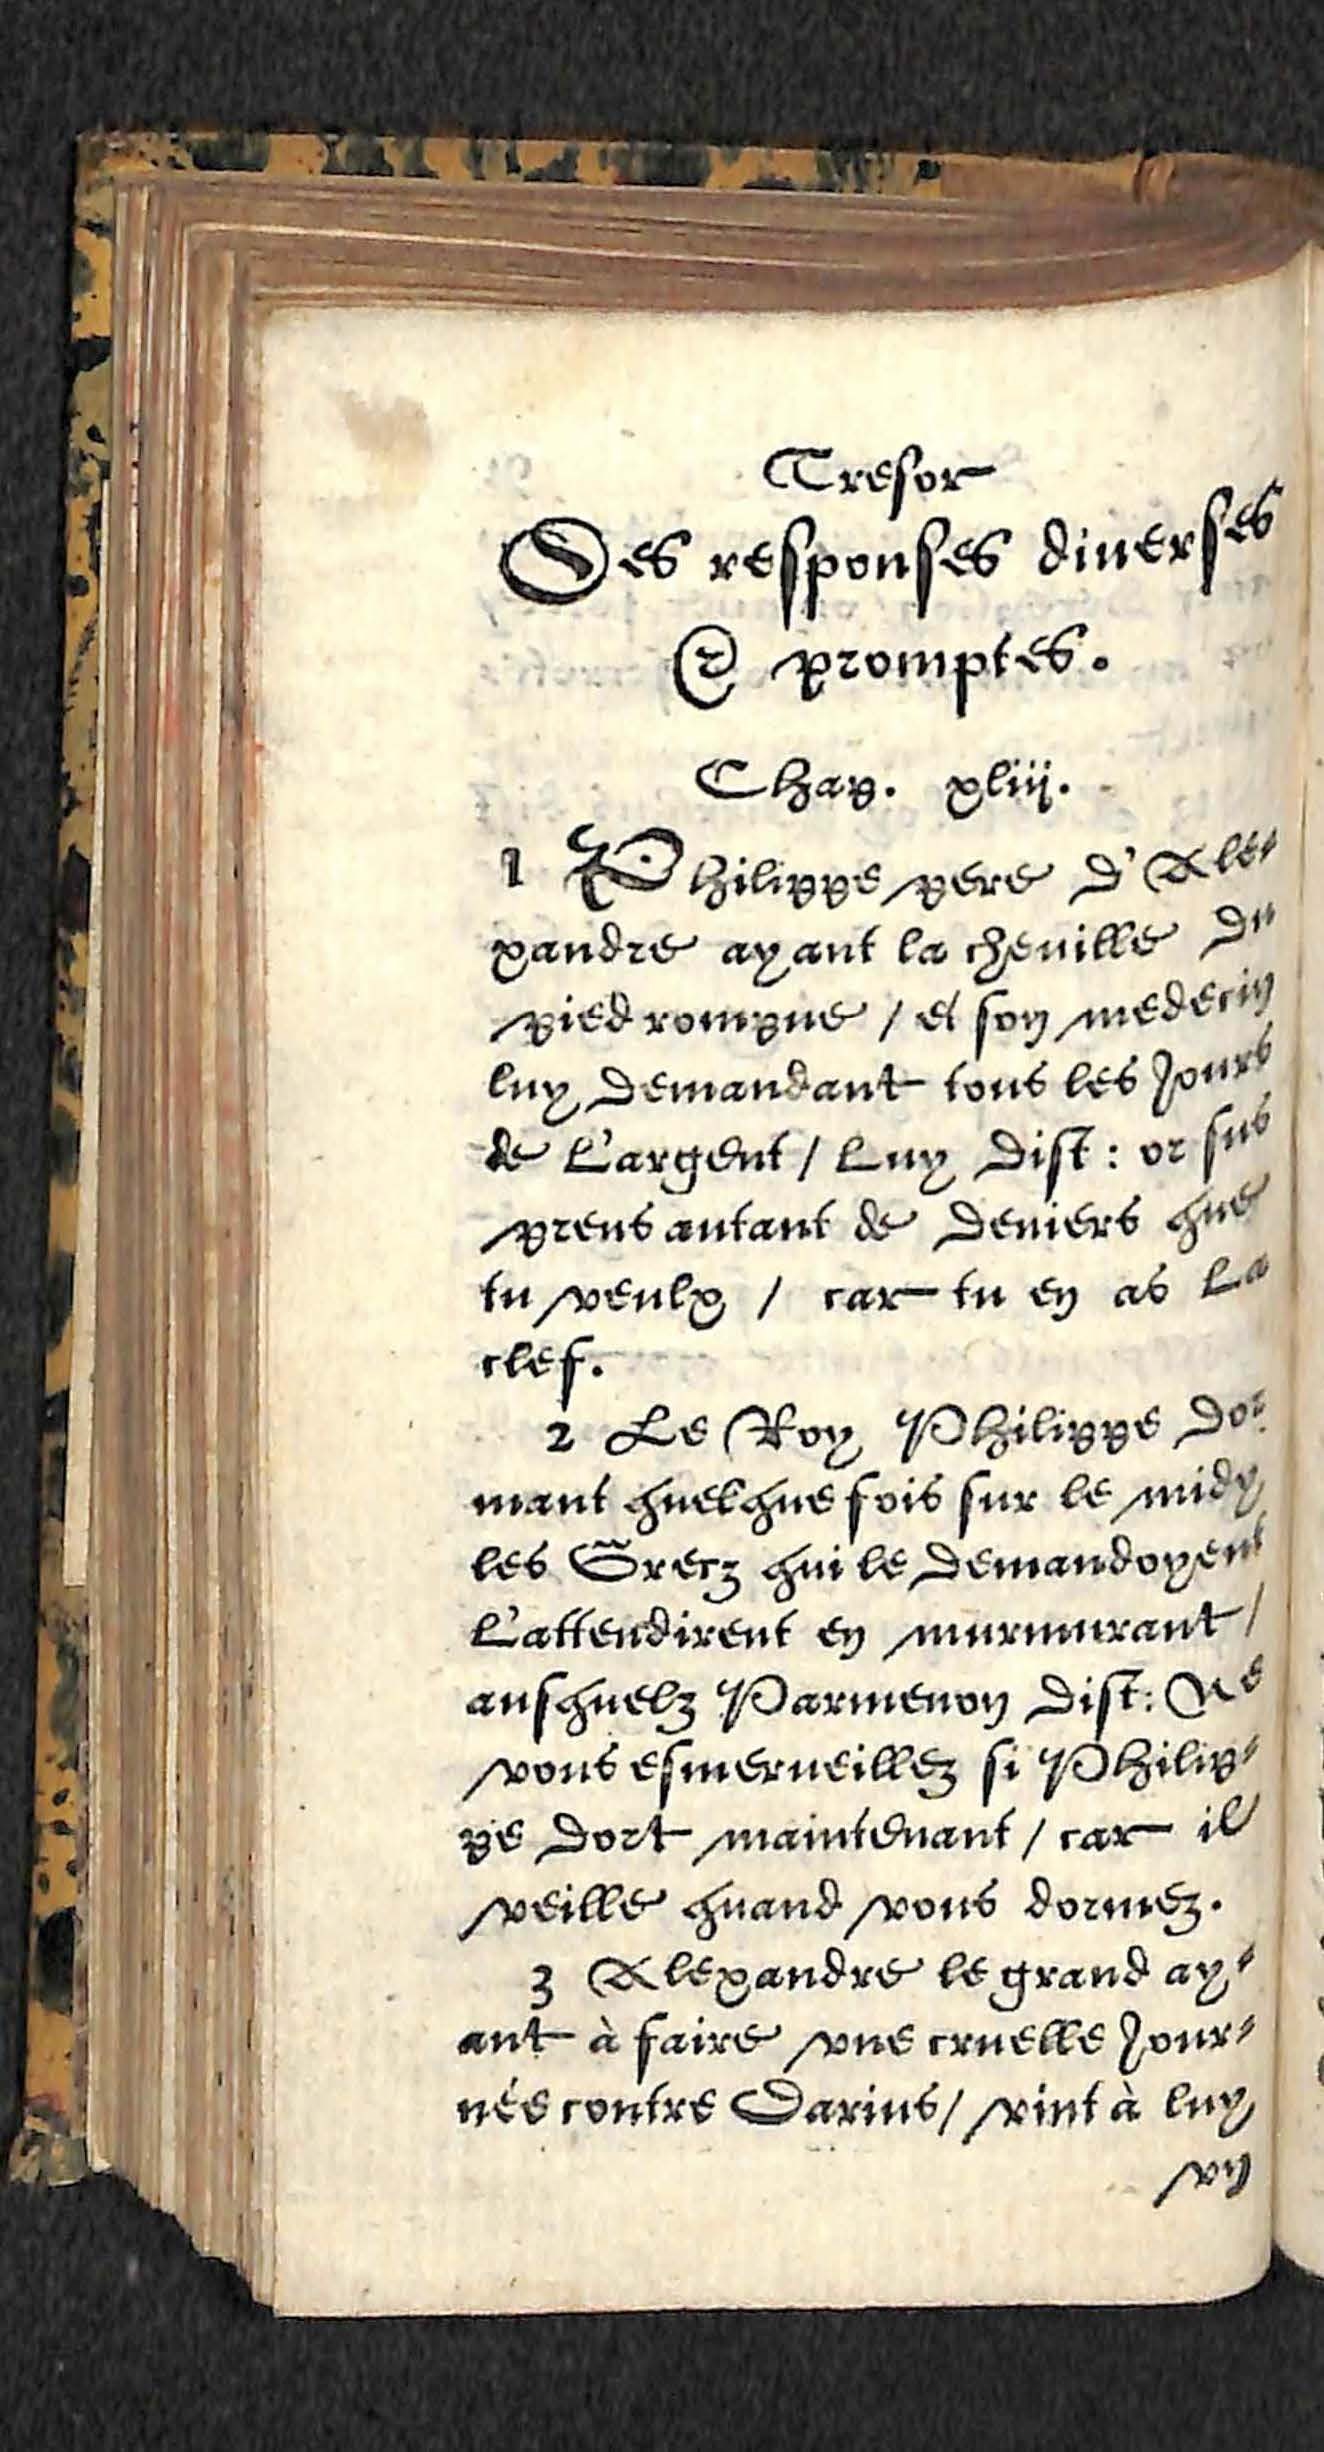 Tresor
Des responses diuerses
& promptes.
Chap. xliij.
1 Philippe pere d'Ale-
xandre ayant la cheuille du
pied rompue / et son medecin
luy demandant tous les jours
de l'argent / luy dist : or sus
prens autant de deniers que
tu veulx / car tu en as la
clef.
2 Le Roy Philippe dor-
mant quelque fois sur le midy
les Grecz qui le demandoyent
l'attendirent en murmurant /
ausquelz Parmenon dist : Ne
vous esmerueillez si Philip-
pe dort maintenant / car il
veille quand vous dormez.
3 Alexandre le grand ay-
ant à faire vne cruelle jour-
née contre Darius / vint à luy
vn